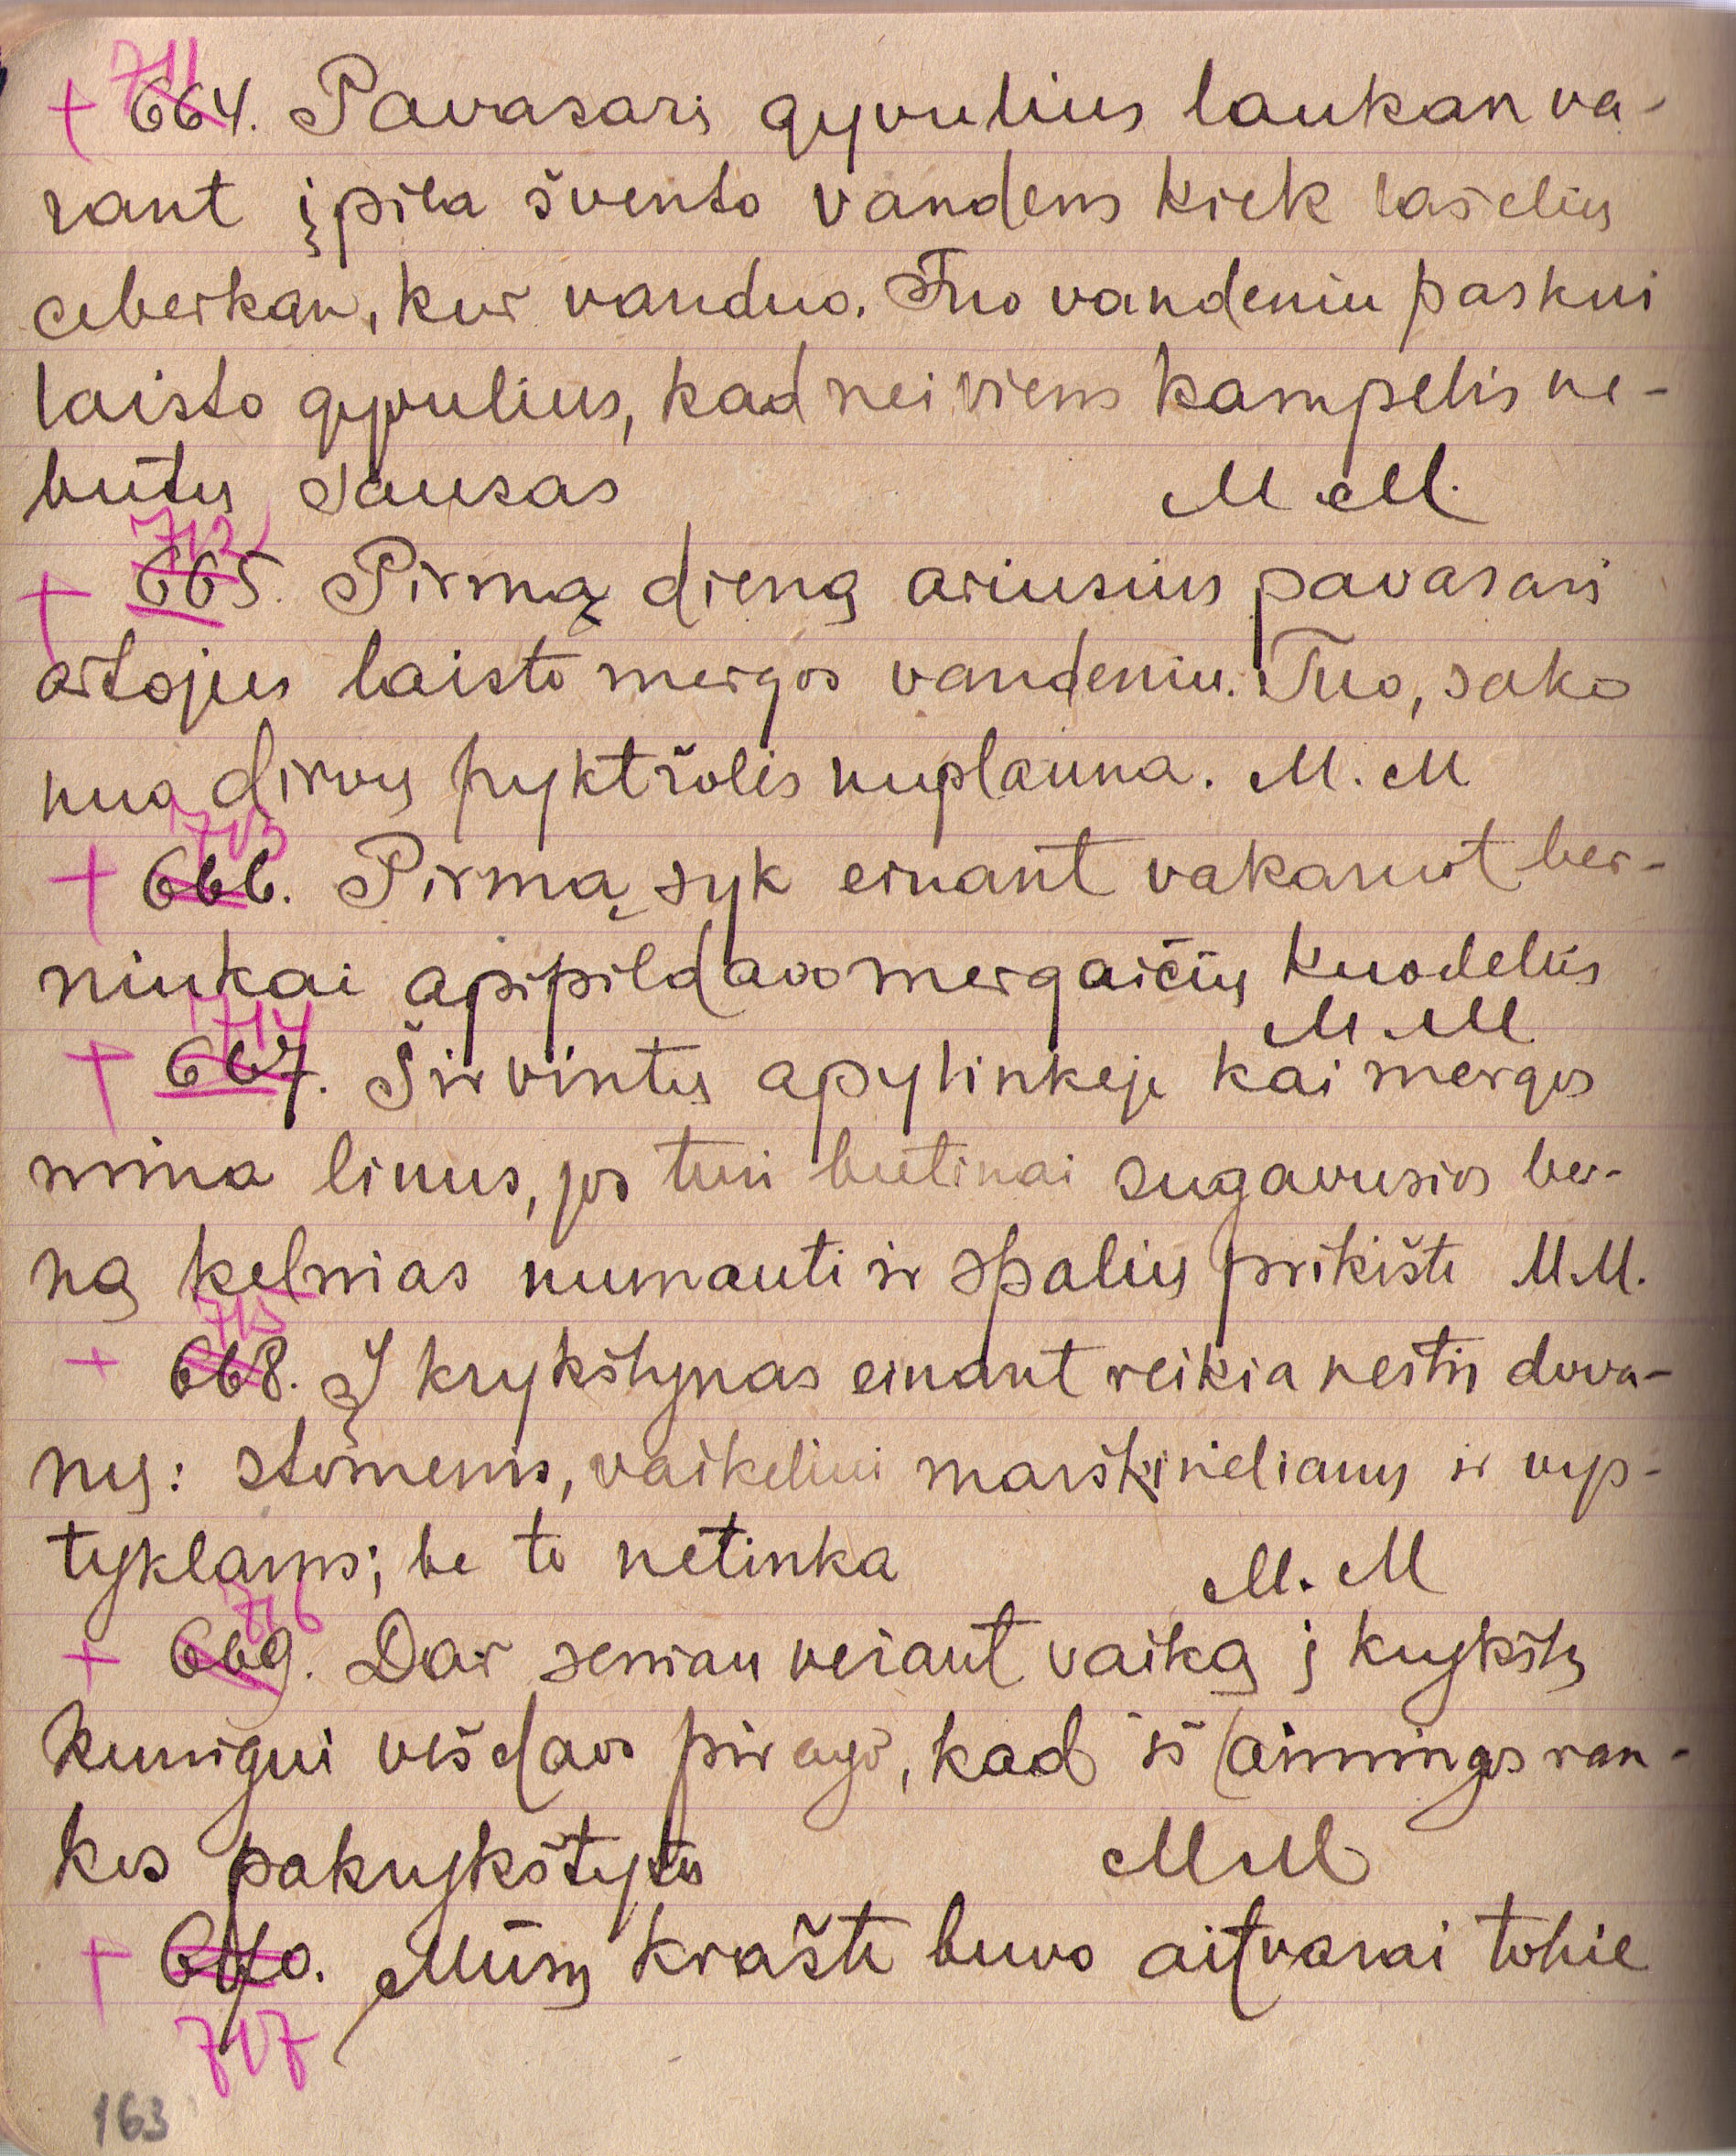 711
+ 664. Pavasarį gyvulius laukan va-
rant įpila švento vandens kiek lašelių
ceberkan, kur vanduo. Tuo vandeniu paskui
laisto gyvulius, kad nei viens kampelis ne-
butų sausas M. M.
712
+ 665. Pirmą dieną ariusius pavasarį
artojus laisto mergos vandeniu. Tuo, sako
nuo dirvų pyktžolės nuplauna. M. M
713
+ 666. Pirmą syk einant vakaruot ber-
niukai apipildavo mergaičių kuodelius
M. M
714
+ 667. Širvintų apylinkėje kai mergos
mina linus, jos turi butinai sugavusios ber-
ną kelnias numauti ir spalių prikišti M.M.
715
+ 668. Į krykštynas einant reikia neštis dova-
nų: stomenis, vaikeliui marškinėliams ir vys-
tyklams; be to netinka M. M
716
+ 669. Dar seniau vežant vaiką į krykštų
kunigui veždavo pirago, kad iš laimingos ran-
kos pakrykštytų M M
+ 670. Mūsų krašte buvo aitvarai tokie
717
163